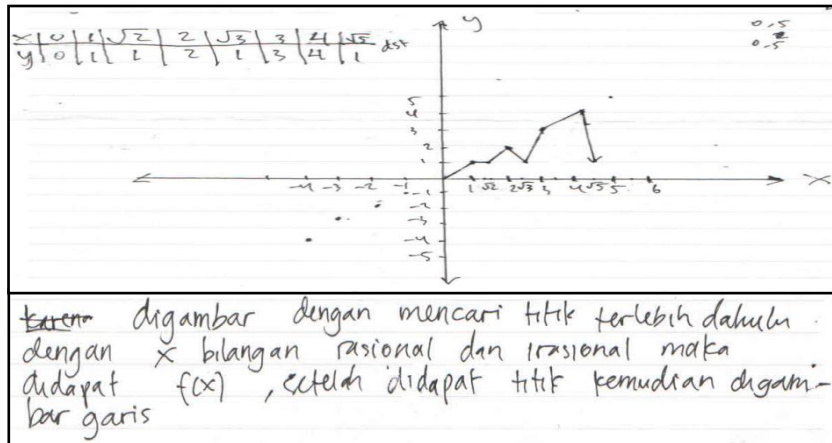 y
x | 0 | 1 | √2 | 2 | √3 | 3 | 4 | √5 dst
y | 0 | 1 | 1 | 2 | 1 | 3 | 4 | 1
0,5
0,5
5
4
3
2
1
-4 -3 -2 -1 1 √2 2 √3 3 4 √5 5 6 x
-1
-2
-3
-4
-5
digambar dengan mencari titik terlebih dahulu
dengan x bilangan rasional dan irasional maka
didapat f(x), setelah didapat titik kemudian digam-
bar garis